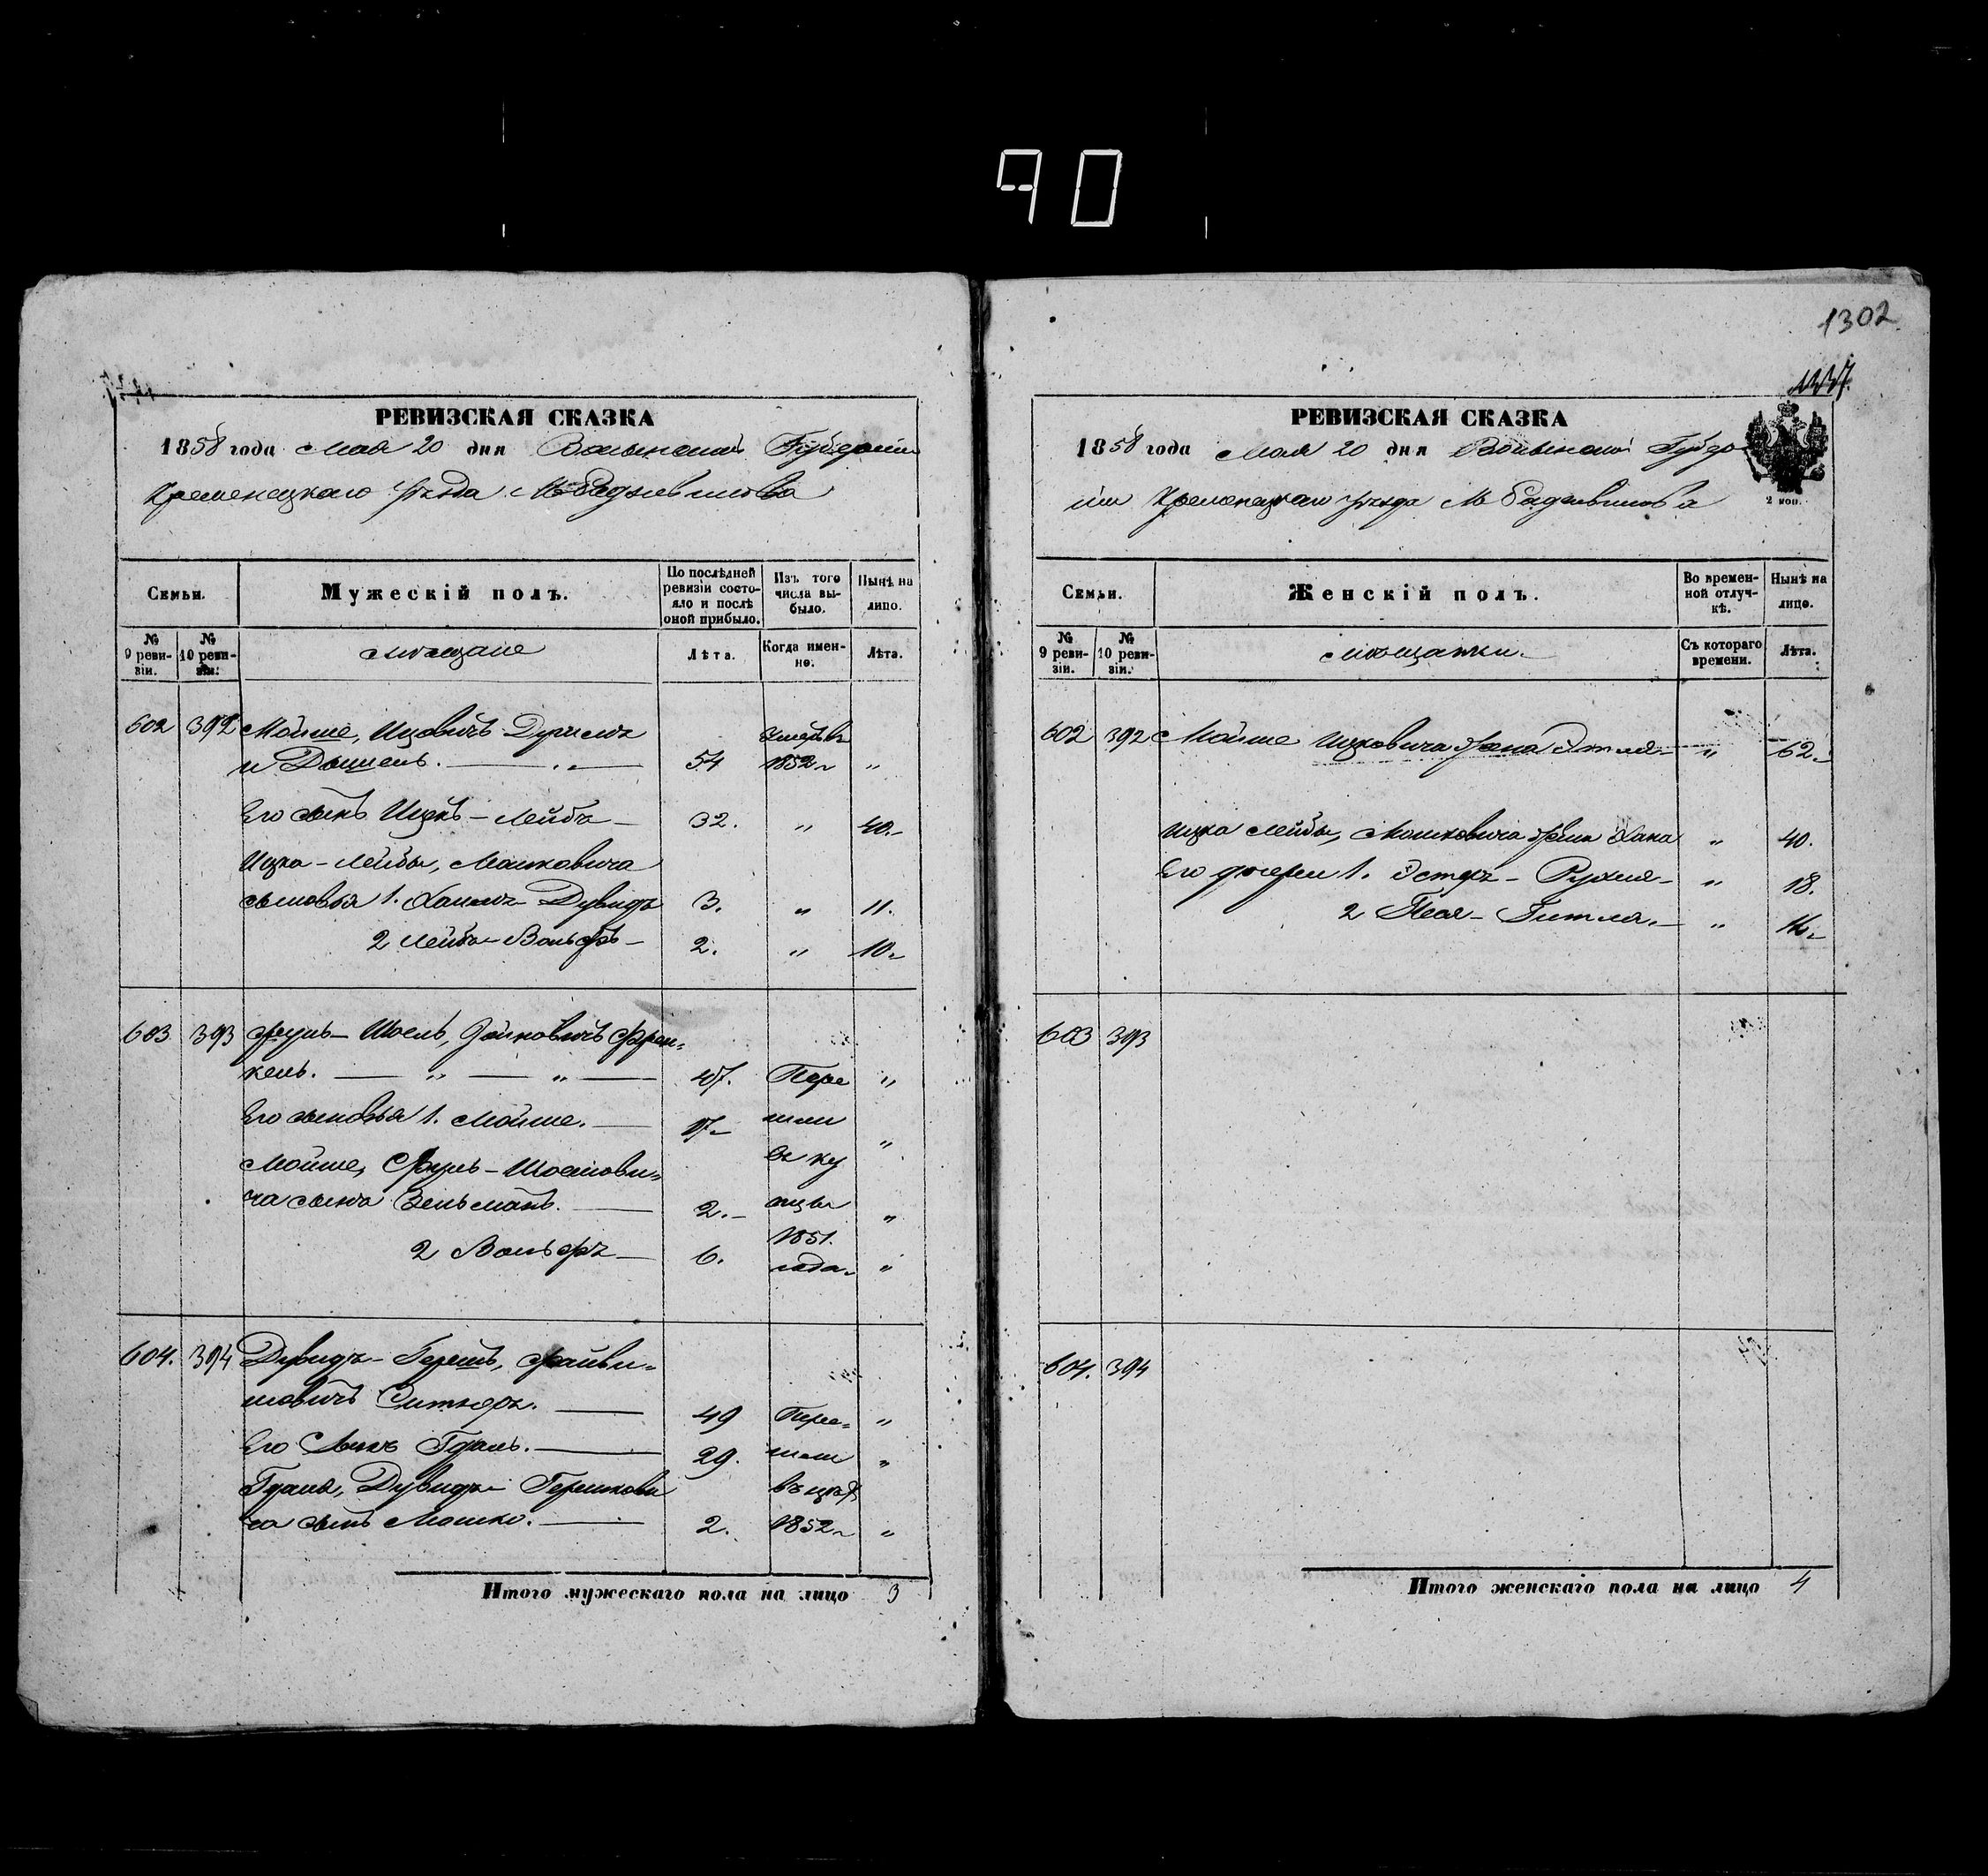 90
1302
РЕВИЗСКАЯ СКАЗКА
1858 года Мая 20 дня Волынской Губернiи
Кременецкаго уѣзда М. Радзивилова
Семьи.
Мужескiй полъ.
По послѣдней ревизiи состояло и послѣ оной прибыло.
Изъ того числа выбыло.
Нынѣ на лицо.
№ 9 ревизiи.
№ 10 ревизiи.
Мѣщане
Лѣта.
Когда именно.
Лѣта.
602 392 Мойше, Ицковичъ
умеръ въ
54 1852 "
Его сынъ Ицекъ - Лейба 32. " 40.
Ицка - Лейбы, Мошковича
сыновья 1. Ханина Дувидъ 3. " 11.
2 Лейба - Вольфъ 2. " 10.
603 393 Шоель, Френ-
кель. " " 47. Пере "
Его сыновья 1. Мойше. 17 шли "
Мойше, Шоелови-
въ ку
ча сынъ Зельманъ. 2. пцы "
1851.
2 Вольфъ 6. года "
604. 394 Дувидъ - Гершъ, Файви-
шовичъ Ситнеръ. 49 Пере- "
Его Сынъ Гдаль. 29. шли "
Гдаля, Дувидъ - Гершкови въ цехъ
ча сынъ Мошко. 2. 1852 "
Итого мужескаго пола на лицо 3
РЕВИЗСКАЯ СКАЗКА
1858 года Мая 20 дня Волынской Губер-
нiи Кременецкаго уѣзда М. Радзивилова
2 коп.
Семьи.
Женскiй полъ.
Во временной отлучкѣ.
Нынѣ на лицо.
№ 9 ревизiи.
№ 10 ревизiи.
Мѣщанки.
Съ котораго времени.
Лѣта.
602 392 Мойше Ицковича жена Этля " 62
Ицка Лейбы, Мошковича жена Хана " 40.
Его дочери 1. Эстеръ - Рухля " 18.
2 Песя - Гитля. " 16
603 393
604. 394
Итого женскаго пола на лицо 4